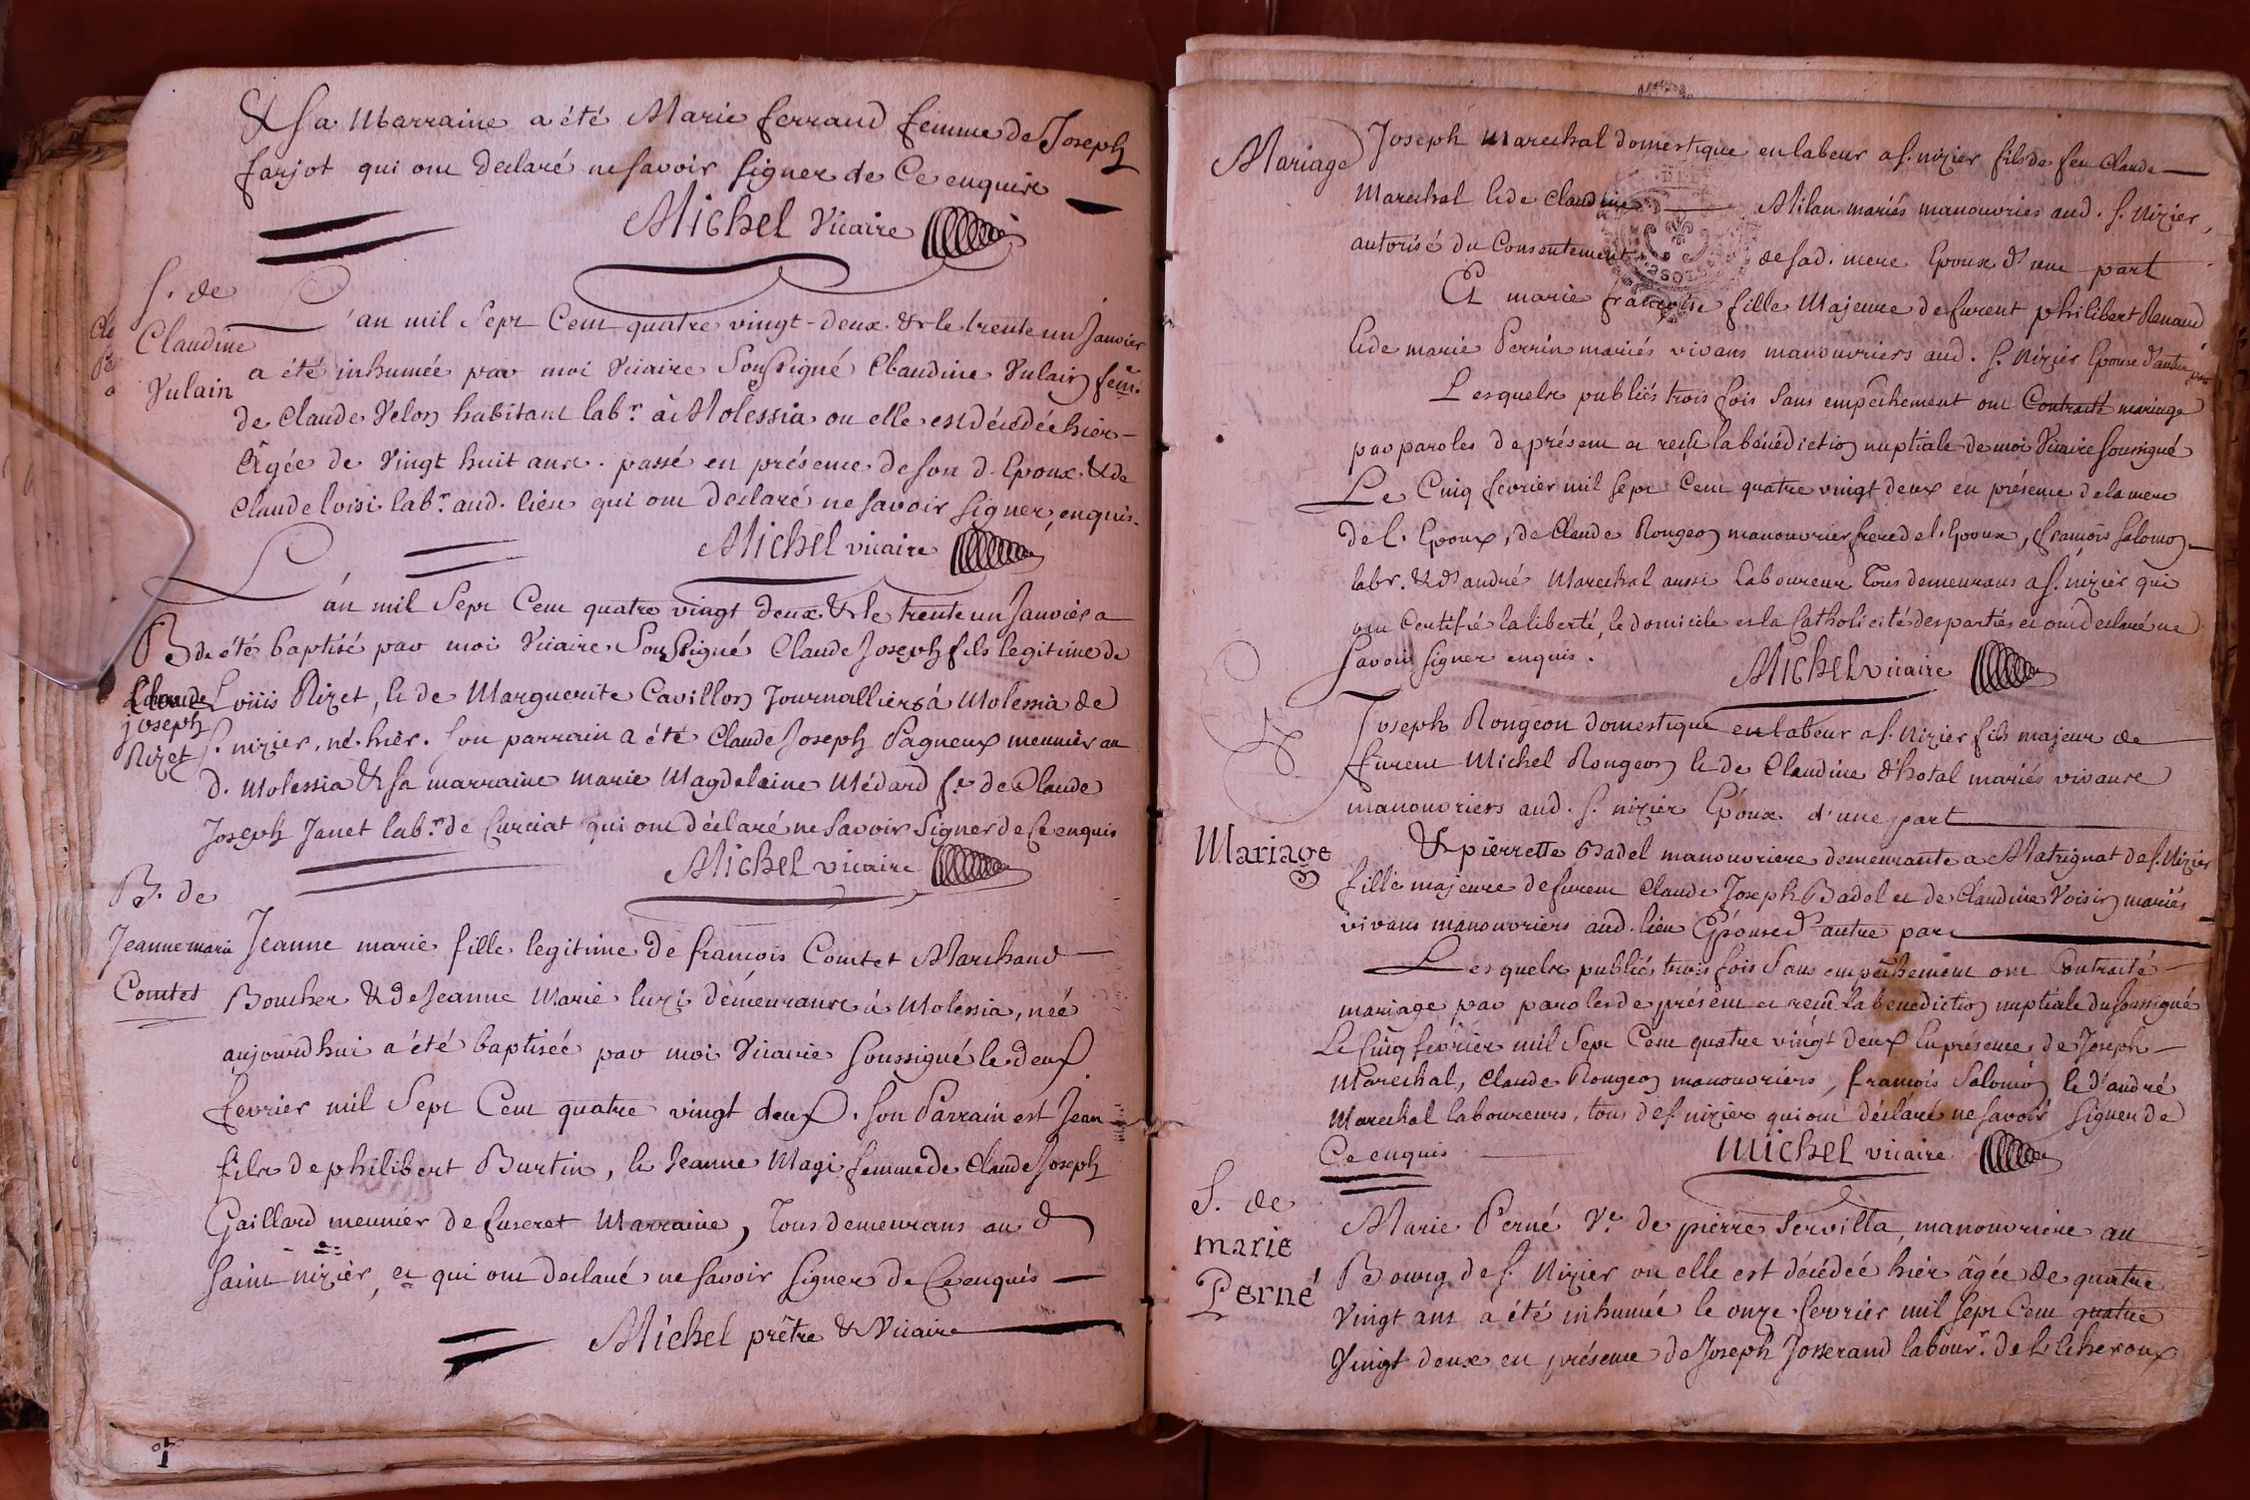 & sa Marraine a été Marie ferrand femme de Joseph
farjot qui ont declaré ne savoir signer de Ce enquis
Michel Vicaire
S. de
Claudine
Vulain
L'an mil Sept Cent quatre vingt-deux & le trente un Janvier
a été inhumée par moi Vicaire Soussigné Claudine Vulain fem.
de Claude Velon habitant labr. à Molessia ou elle est décédée hier
Agée de Vingt huit ans. passé en présence de son d. Epoux & de
Claude loisi labr. aud. lieu qui ont declaré ne savoir signer, enquis.
Michel vicaire
L'an mil Sept Cent quatre vingt deux & le trente un Janvier a
B de
été baptisé par moi Vicaire Soussigné Claude Joseph fils legitime de
Claude
Loüis Rizet, & de Marguerite Cavillon Journalliers à Molessia de
joseph
S. nizier, né hier. son parrain a été Claude Joseph Pagneux meunier au
Rizet
d. Molessia & sa marraine marie Magdelaine Médard fe. de Claude
Joseph Janet labr. de Curciat qui ont déclaré ne savoir signer de Ce enquis
Michel vicaire
B. de
Jeanne marie
Comtet
Jeanne marie fille legitime de francois Comtet Marchand
Boucher & de Jeanne Marie luzi demeurants à Molessia, née
aujourdhui a été baptisée par moi Vicaire soussigné le deux
fevrier mil Sept Cent quatre vingt deux. son Parrain est Jean
fils de philibert Burtin, & Jeanne Magi femme de Claude Joseph
Gaillard meunier de Marraine, Tous demeurans au d
saint nizier, et qui ont declaré ne savoir signer de Ce enquis
Michel prêtre & Vicaire
Mariage
Joseph Marechal domestique en labeur a s. nizier fils de feu Claude
Marechal & de Claudine Milan mariés manouvries aud. s. Nizier,
autorisé du Consentement de sad. mere Epoux d'une part
Et marie francoise fille Majeure de furent philibert Renaud
& de marie Perrin mariés vivans manouvriers aud. s. Nizier Epouse d'autre part
Lesquels publiés trois fois sans empêchement ont Contracté mariage
par paroles de présent et recu la bénédiction nuptiale de moi Vicaire soussigné
Le Cinq fevrier mil sept Cent quatre vingt deux en présence de la mere
de l. Epoux, de Claude Rongeon manouvrier frere de l. Epoux, francois Salomon
labr. & d'andré Marechal aussi Laboureur Tous demeurans a s. nizier qui
ont Certifié la liberté, le domicile et la Catholicité des parties et ont declaré ne
savoir signer enquis.
Michel vicaire
Joseph Rongeon domestique en labeur a s. Nizier fils majeur de
furent Michel Rongeon & de Claudine d'hotal mariés vivans
manouvriers aud. s. nizier Epoux d'une part
Mariage
& pierrette Badel manouvriere demeurante a Matrignat de s. Nizier
fille majeure de furent Claude Joseph Badel et de Claudine Voisin mariés
vivans manouvriers aud. lieu Epouse d'autre part
Lesquels publiés trois fois sans empêchement ont Contracté
mariage par paroles de présent et recu la benediction nuptiale du soussigné
Le Cinq fevrier mil Sept Cent quatre vingt deux En présence de Joseph
Marechal, Claude Rongeon manouvriers, francois Salomon & d'andré
Marechal laboureurs, tous de s nizier qui ont déclaré ne savoir signer de
Ce enquis
michel vicaire
S. de
marie
Perné
Marie Perné Ve. de pierre Servilla, manouvriere au
Bourg de s. Nizier ou elle est décédée hier âgée de quatre
Vingt ans a été inhumée le onze fevrier mil sept Cent quatre
Vingt deux en présence de Joseph Josserand labour. de